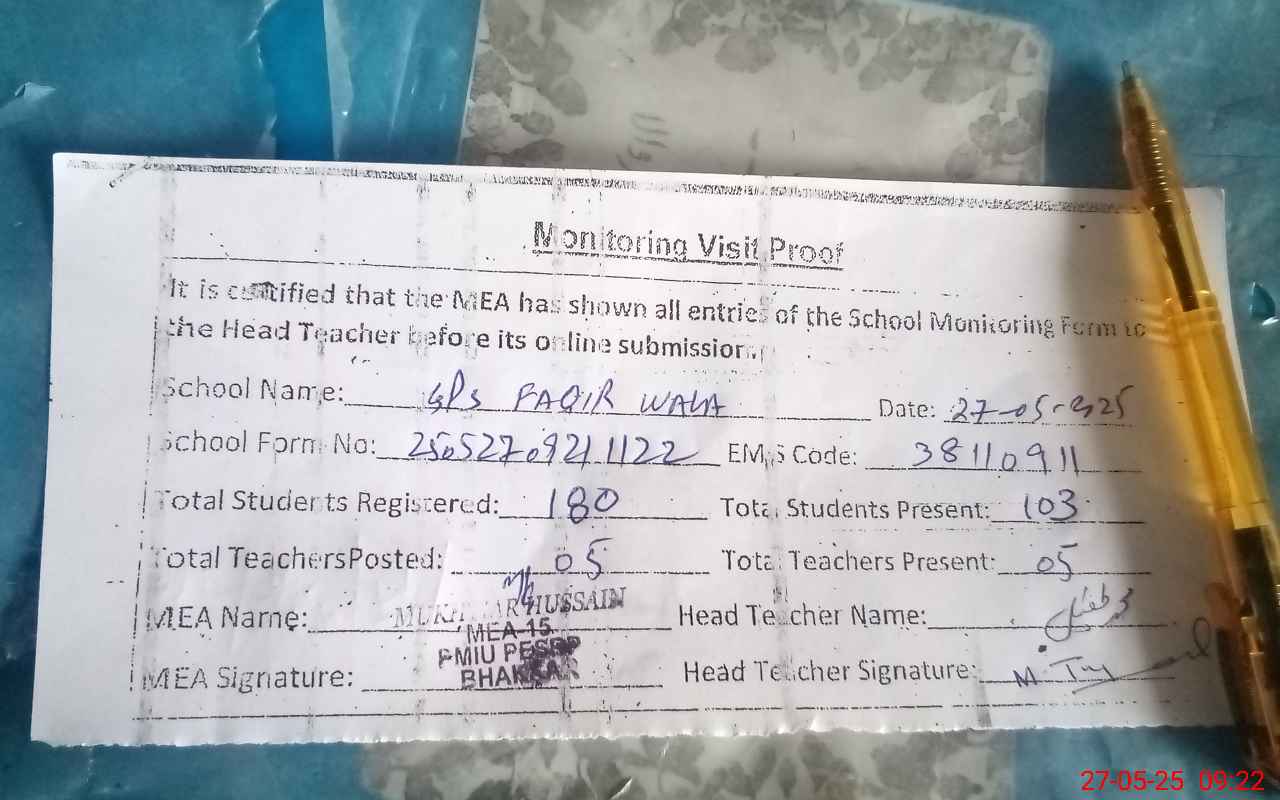 Monitoring Visit Proof
It is certified that the MEA has shown all entries of the School Monitoring Form to
the Head Teacher before its online submission.
School Name: GPS FAQIR WALA Date: 27-05-2025
School Form No: 250527092 1122 EMIS Code: 38110911
Total Students Registered: 180 Total Students Present: 103
Total Teachers Posted: 05 Total Teachers Present: 05
MEA Name: MUKHTIAR HUSSAIN Head Teacher Name: محمد طفیل
MEA-15
PMIU PESRP
BHAKKAR
MEA Signature: Head Teacher Signature: M.
27-05-25 09:22